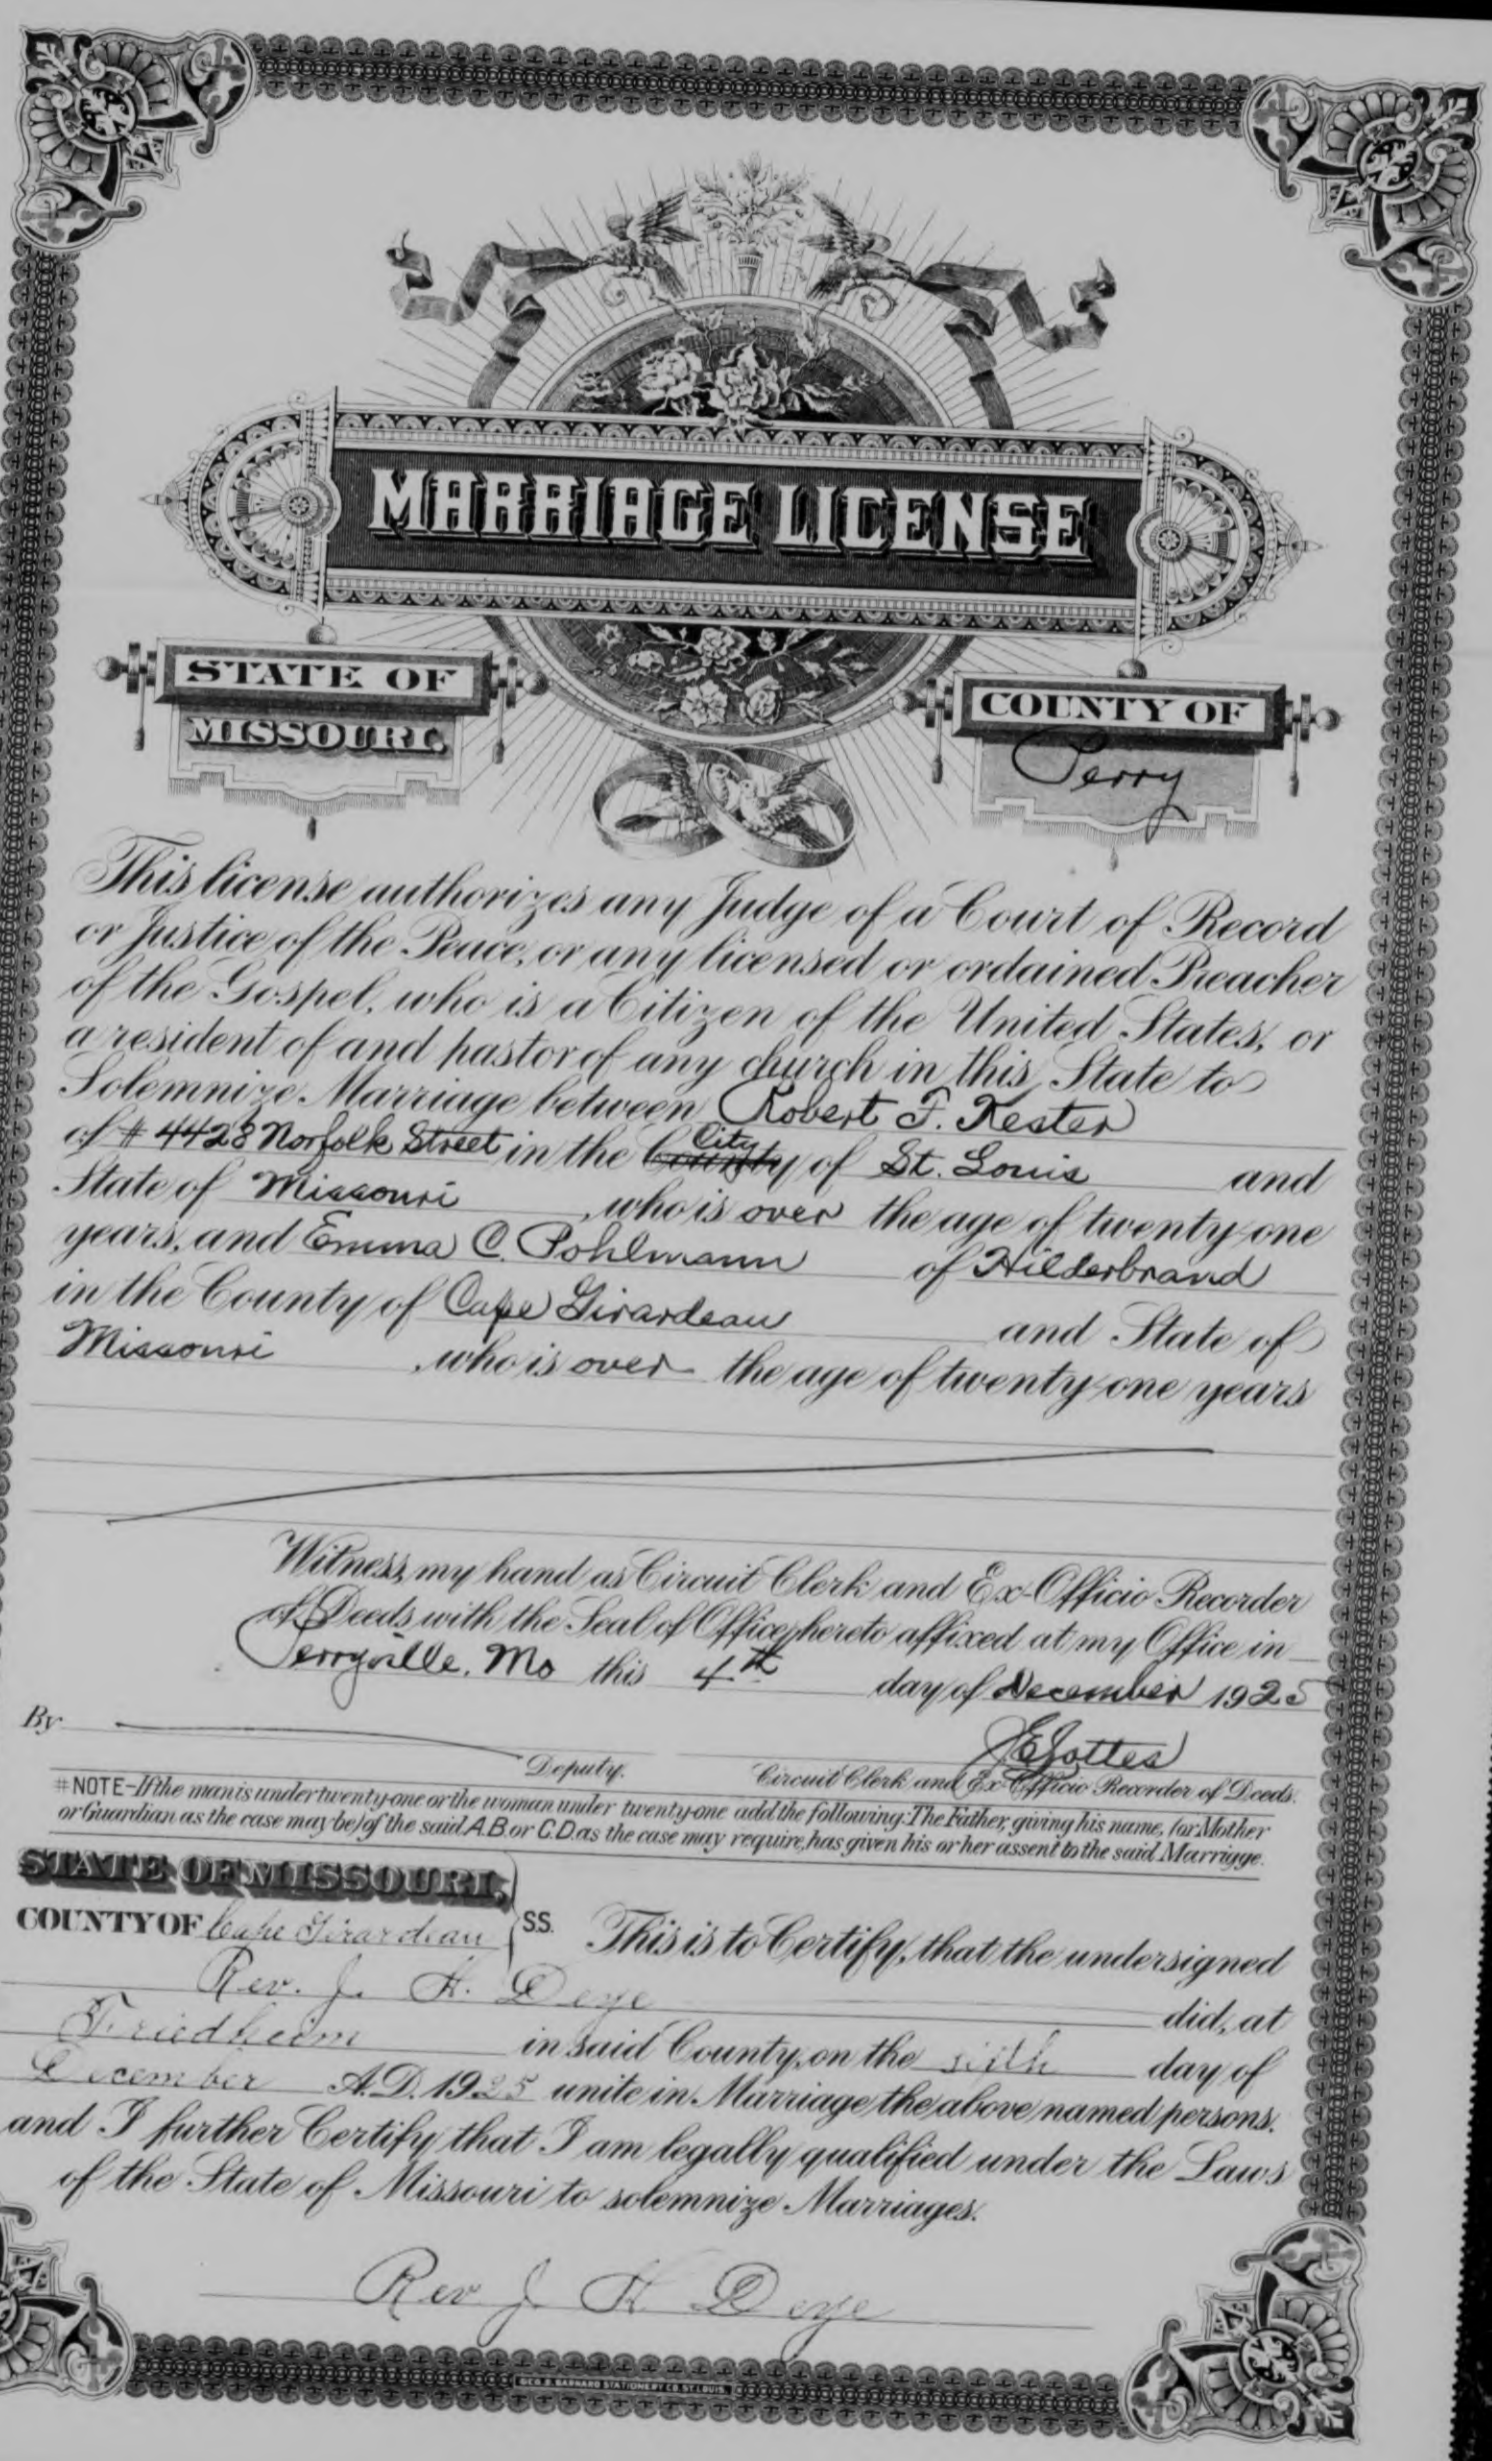 MARRIAGE LICENSE
STATE OF
MISSOURI.
COUNTY OF
Perry
This license authorizes any Judge of a Court of Record
or Justice of the Peace, or any licensed or ordained Preacher
of the Gospel, who is a Citizen of the United States, or
a resident of and pastor of any church in this State to
Solemnize Marriage between Robert F. Kester
of # 4428 Norfolk Street in the County City of St. Louis and
State of Missouri, who is over the age of twenty-one
years, and Emma C. Pohlmann of Hilderbrand
in the County of Cape Girardeau and State of
Missouri, who is over the age of twenty-one years
Witness my hand as Circuit Clerk and Ex-Officio Recorder
of Deeds with the Seal of Office hereto affixed at my Office in
Perryville, Mo this 4th day of December 1925
By
Deputy.
Circuit Clerk and Ex-Officio Recorder of Deeds.
#NOTE-If the man is under twenty-one or the woman under twenty-one add the following: The Father, giving his name, (or Mother
or Guardian as the case may be) of the said A.B. or C.D. as the case may require, has given his or her assent to the said Marriage.
STATE OF MISSOURI,
COUNTY OF Cape Girardeau SS. This is to Certify, that the undersigned
Rev. J. H. Deye did, at
Friedheim in said County, on the sixth day of
December A.D. 1925 unite in Marriage the above named persons.
and I further Certify that I am legally qualified under the Laws
of the State of Missouri to solemnize Marriages.
Rev J H Deye
GEO. D. BARNARD STATIONERY CO. ST. LOUIS.